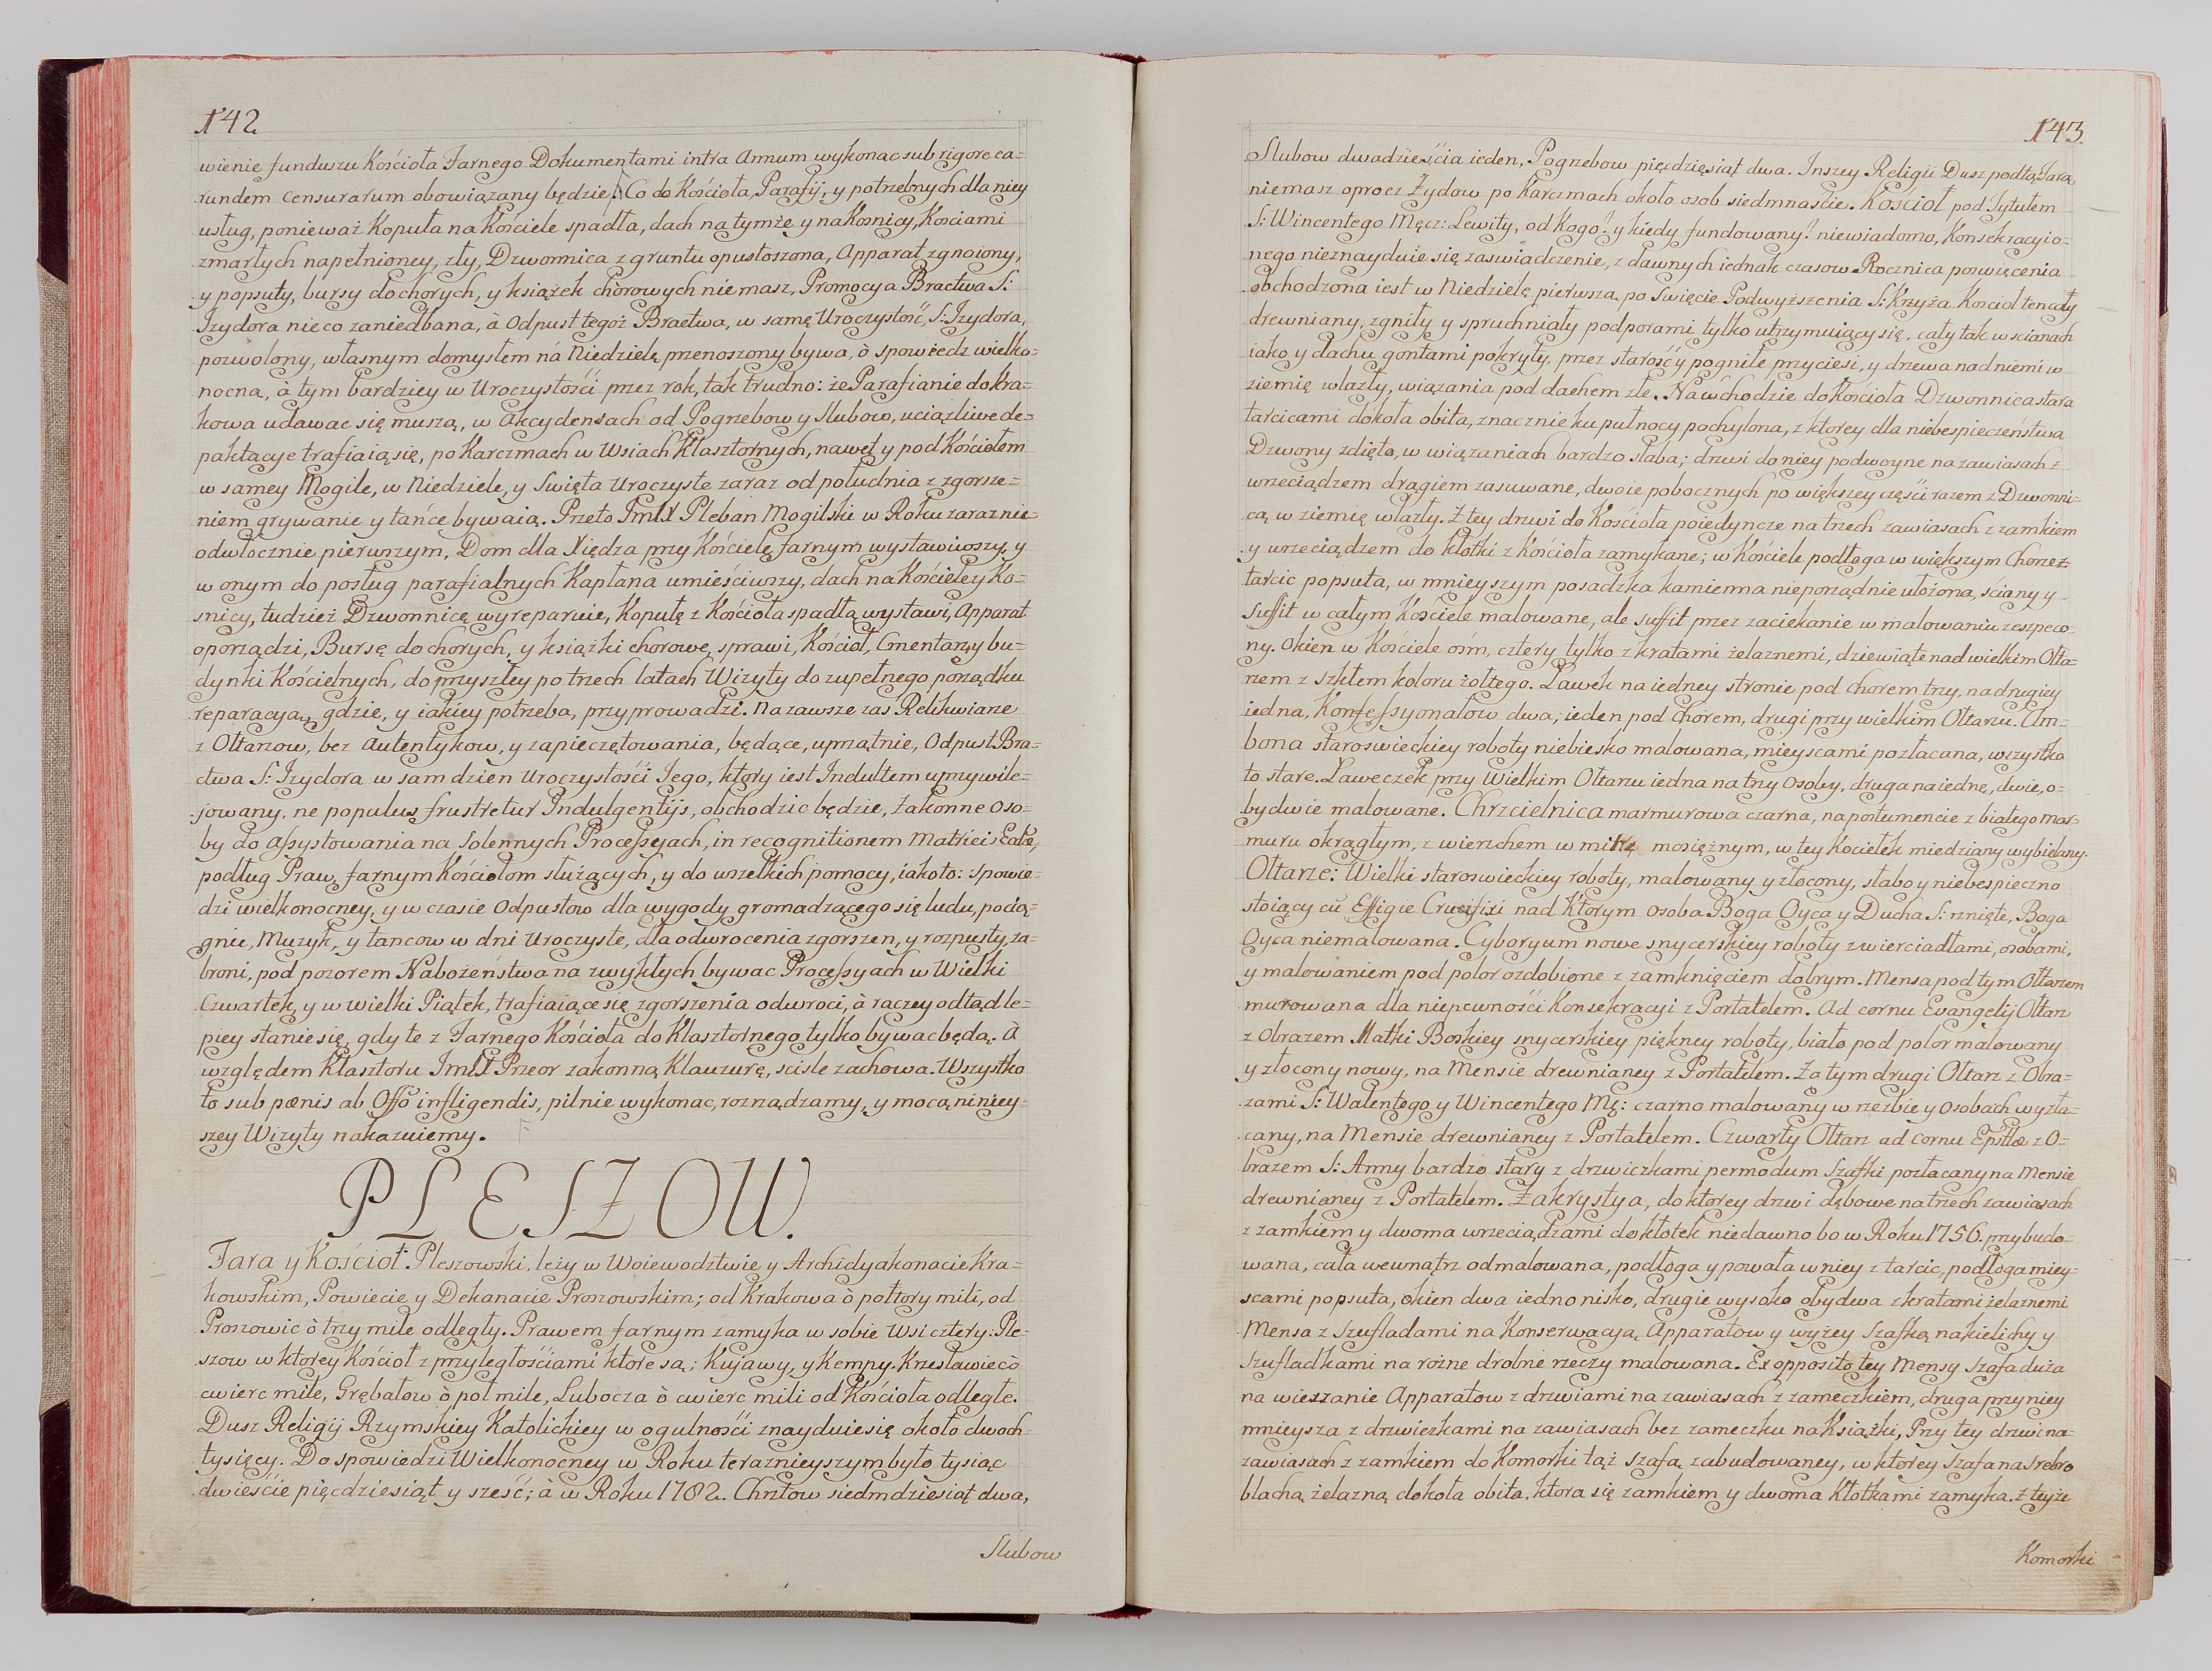 142
wienię funduszu Kościoła Farnego Dokumentami intra Annum wykonac sub rigore ea=
rundem Censurarum obowiązany będzie. Co do Kościoła, Parafij, y potrzebnych dla niey
usług, ponieważ Kopuła na Kościele spadła, dach na tymże y na Kosnicy, Kościami
zmarłych napełnioney, zły, Dzwonnica z gruntu opustoszona, Apparat zgnoiony,
y popsuty, bursy do chorych, y książek chòrowych niemasz, Promocya Bractwa S:
Izydora nieco zaniedbana, à Odpust tegoż Bractwa, w samę Uroczystość, S: Izydora,
pozwolony, własnym domysłem ná Niedzielę przenoszony bywa, ò spowiedz wielko=
nocna, à tym bardziey w Uroczystości przez rok, tak trudno: że Parafianie do Kra=
kowa udawac się muszą, w Akcydensach od Pogrzebow y Slubow, uciążliwe de=
paktacye trafiaią się, po Karczmach w Wsiach Klasztornych, nawet y pod Kościołem
w samey Mogile, w Niedziele, y Swięta Uroczyste zaraz od południa z zgorsze=
niem grywanie y tańce bywaią. Przeto JmX Pleban Mogilski w Roku zaraz nie=
odwłocznie pierwszym, Dom dla Xiędza przy Kościele farnym wystawiwszy, y
w onym do posług parafialnych Kapłana umieściwszy, dach na Kościele y Ko=
snicy, tudzież Dzwonnicę wyreparuie, Kopułę z Kościoła spadłą wystawi, Apparat
oporządzi, Bursę do chorych, y książki chorowe, sprawi, Kościoł, Cmentarz, y bu=
dynki Kościelnych, do przyszłey po trzech latach Wizyty do zupełnego porządku
reparacyą, gdzie, y iakiey potrzeba, przyprowadzi. Na zawsze zas Relikwiarze
z Ołtarzow, bez Autentykow, y zapieczętowania, będące, uprzątnie, Odpust Bra=
ctwa S: Izydora w sam dzien Uroczystości Jego, ktory iest Indultem uprzywile=
jowany, ne populus frustretur Indulgentijs, obchodzic będzie, Zakonne Oso=
by do Assystowania na Solennych Processyach, in recognitionem Matricis Ecclæ,
podług Praw, farnym Kościołom służących, y do wszelkich pomocy, iakoto: spowie=
dzi wielkonocney, y w czasie Odpustow dla wygody gromadzącego się ludu, pocią=
gnie, Muzyk, y tancow w dni Uroczyste, dla odwrocenia zgorszen, y rozpusty, za=
broni, pod pozorem Nabożeństwa na zwykłych bywac Processyach w Wielki
Czwartek, y w wielki Piątek, trafiaiące się zgorszenia odwroci, à raczey odtąd le=
piey stanie się, gdy te z Farnego Kościoła do Klasztornego tylko bywac będą. À
względem Klasztoru JmX Przeor zakonną Klauzurę, scisle zachowa. Wszystko
to sub pœnis ab Offo infligendis, pilnie wykonac, roznądzamy, y mocą niniey=
szey Wizyty nakazuiemy.
PLESZOW.
Fara y Kościoł Pleszowski, leży w Woiewodztwie y Archidyakonacie Kra=
kowskim, Powiecie y Dekanacie Proszowskim; od Krakowa ò połtory mili, od
Proszowic ò trzy mile odległy. Prawem farnym zamyka w sobie Wsi cztery: Ple=
szow w ktorey Kościoł z przyległościami ktore są; Kujawy, y Kempy. Krzesławice ò
cwierc mile, Grębałow ò poł mile, Lubocza ò cwierc mili od Kościoła odległe.
Dusz Religij Rzymskiey Katolickiey w ogulności znayduie się około dwoch
tysięcy. Do spowiedzi Wielkonocney w Roku teraznieyszym było tysiąc
dwieście pięcdziesiąt y sześć; à w Roku 1782. Chrztow siedmdziesiąt dwa,
Slubow
143.
Slubow dwadzieścia ieden, Pogrzebow pięcdzięsiąt dwa. Inszey Religii Dusz pod tą Farą
niemasz oprocz Żydow po Karczmach około osob siedmnaście. Kościoł pod Tytułem
S: Wincentego Męcz: Lewity, od Kogo? y kiedy fundowany? niewiadomo, Konsekracyi o=
nego nieznayduie się zaswiadczenie, z dawnych iednak czasow Rocznica poswięcenia
obchodzona iest w Niedzielę pierwszą po Swięcie Podwyższenia S: Krzyża. Koscioł ten cały
drewniany, zgniły y spruchniały podporami tylko utrzymuiący się, cały tak w scianach
iako y dachu gontami pokryty, przez starość y pogniłe przyciesi, y drzewa nad niemi w
ziemię wlazły, wiązania pod dachem złe. Na wchodzie do Kościoła Dzwonnica stara
tarcicami dokoła obita, znacznie ku pułnocy pochylona, z ktorey dla niebespieczeństwa
Dzwony zdięto, w wiązaniach bardzo słaba; drzwi do niey podwoyne na zawiasach z
wrzeciądzem drągiem zasuwane, dwoie pobocznych po większey częsći razem z Dzwonni=
cą w ziemię wlazły. Z tey drzwi do Kościoła poiedyncze na trzech zawiasach z zamkiem
y wrzeciądzem do kłotki z Kościoła zamykane; w Kościele podłoga w większym Chorze z
tarcic popsuta, w mnieyszym posadzka kamienna nieporządnie ułożona, ściany y
Suffit w całym Kościele malowane, ale suffit przez zaciekanie w malowaniu zeszpeco=
ny. Okien w Kościele ośm, cztery tylko z kratami żelaznemi, dziewiąte nad wielkim Ołta=
rzem z szkłem koloru żołtego. Ławek na iedney stronie pod chorem trzy, na drugiey
iedna, Konfessyonałow dwa, ieden pod Chórem, drugi przy wielkim Ołtarzu. Am=
bona staroswieckiey roboty niebiesko malowana, mieyscami pozłacana, wszystko
to stare. Ławeczek przy Wielkim Ołtarzu iedna na trzy Osoby, druga na iednę, dwie, o=
bydwie malowane. Chrzcielnica marmurowa czarna, na postumencie z białego mar=
muru okrągłym, z wierzchem w mitrę mosiężnym, w tey Kociełek miedziany wybielany.
Ołtarze: Wielki staroswieckiey roboty, malowany y złocony, słabo y niebespieczno
stoiący cũ Effigie Crucifixi nad ktorym Osoba Boga Oyca y Ducha S: rznięte, Boga
Oyca niemalowana. Cyboryum nowe snycerskiey roboty zwierciadłami, osobami,
y malowaniem pod polor ozdobione z zamknięciem dobrym. Mensa pod tym Ołtarzem
murowana dla niepewności Konsekracyi z Portatelem. Ad cornu Evangelij Ołtarz
z Obrazem Matki Boskiey snycerskiey piękney roboty, biało pod polor malowany
y złocony nowy, na Mensie drewnianey z Portatelem. Za tym drugi Ołtarz z Obra=
zami S: Walentego y Wincentego Mę: czarno malowany w rzezbie y Osobach wyzła=
cany, na Mensie drewnianey z Portatelem. Czwarty Ołtarz ad cornu Epistolæ z O=
brazem S: Anny bardzo stary z drzwiczkami per modum Szafki pozłacany na Mensie
drewnianey z Portatelem. Zakrystya, do ktorey drzwi dębowe na trzech zawiasach
z zamkiem y dwoma wrzeciądzami do kłotek niedawno bo w Roku 1756. przybudo=
wana, cała wewnątrz odmalowana, podłoga y powała w niey z tarcic, podłoga miey=
scami popsuta, okien dwa iedno nisko, drugie wysoko obydwa z kratami żelaznemi
Mensa z szufladami na Konserwacyą Apparatow y wyżey Szafką na kielichy y
szufladkami na rożne drobne rzeczy malowana. Ex opposito tey Mensy szafa duża
na wieszanie Apparatow z drzwiami na zawiasach z zameczkiem, druga przy niey
mnieysza z drzwiczkami na zawiasach bez zameczku na Książki, Przy tey drzwi na
zawiasach z zamkiem do Komorki tąż szafą zabudowaney, w ktorey Szafa na Srebro
blachą żelazną dokoła obita, ktora się zamkiem y dwoma Kłotkami zamyka. Z teyże
Komorki